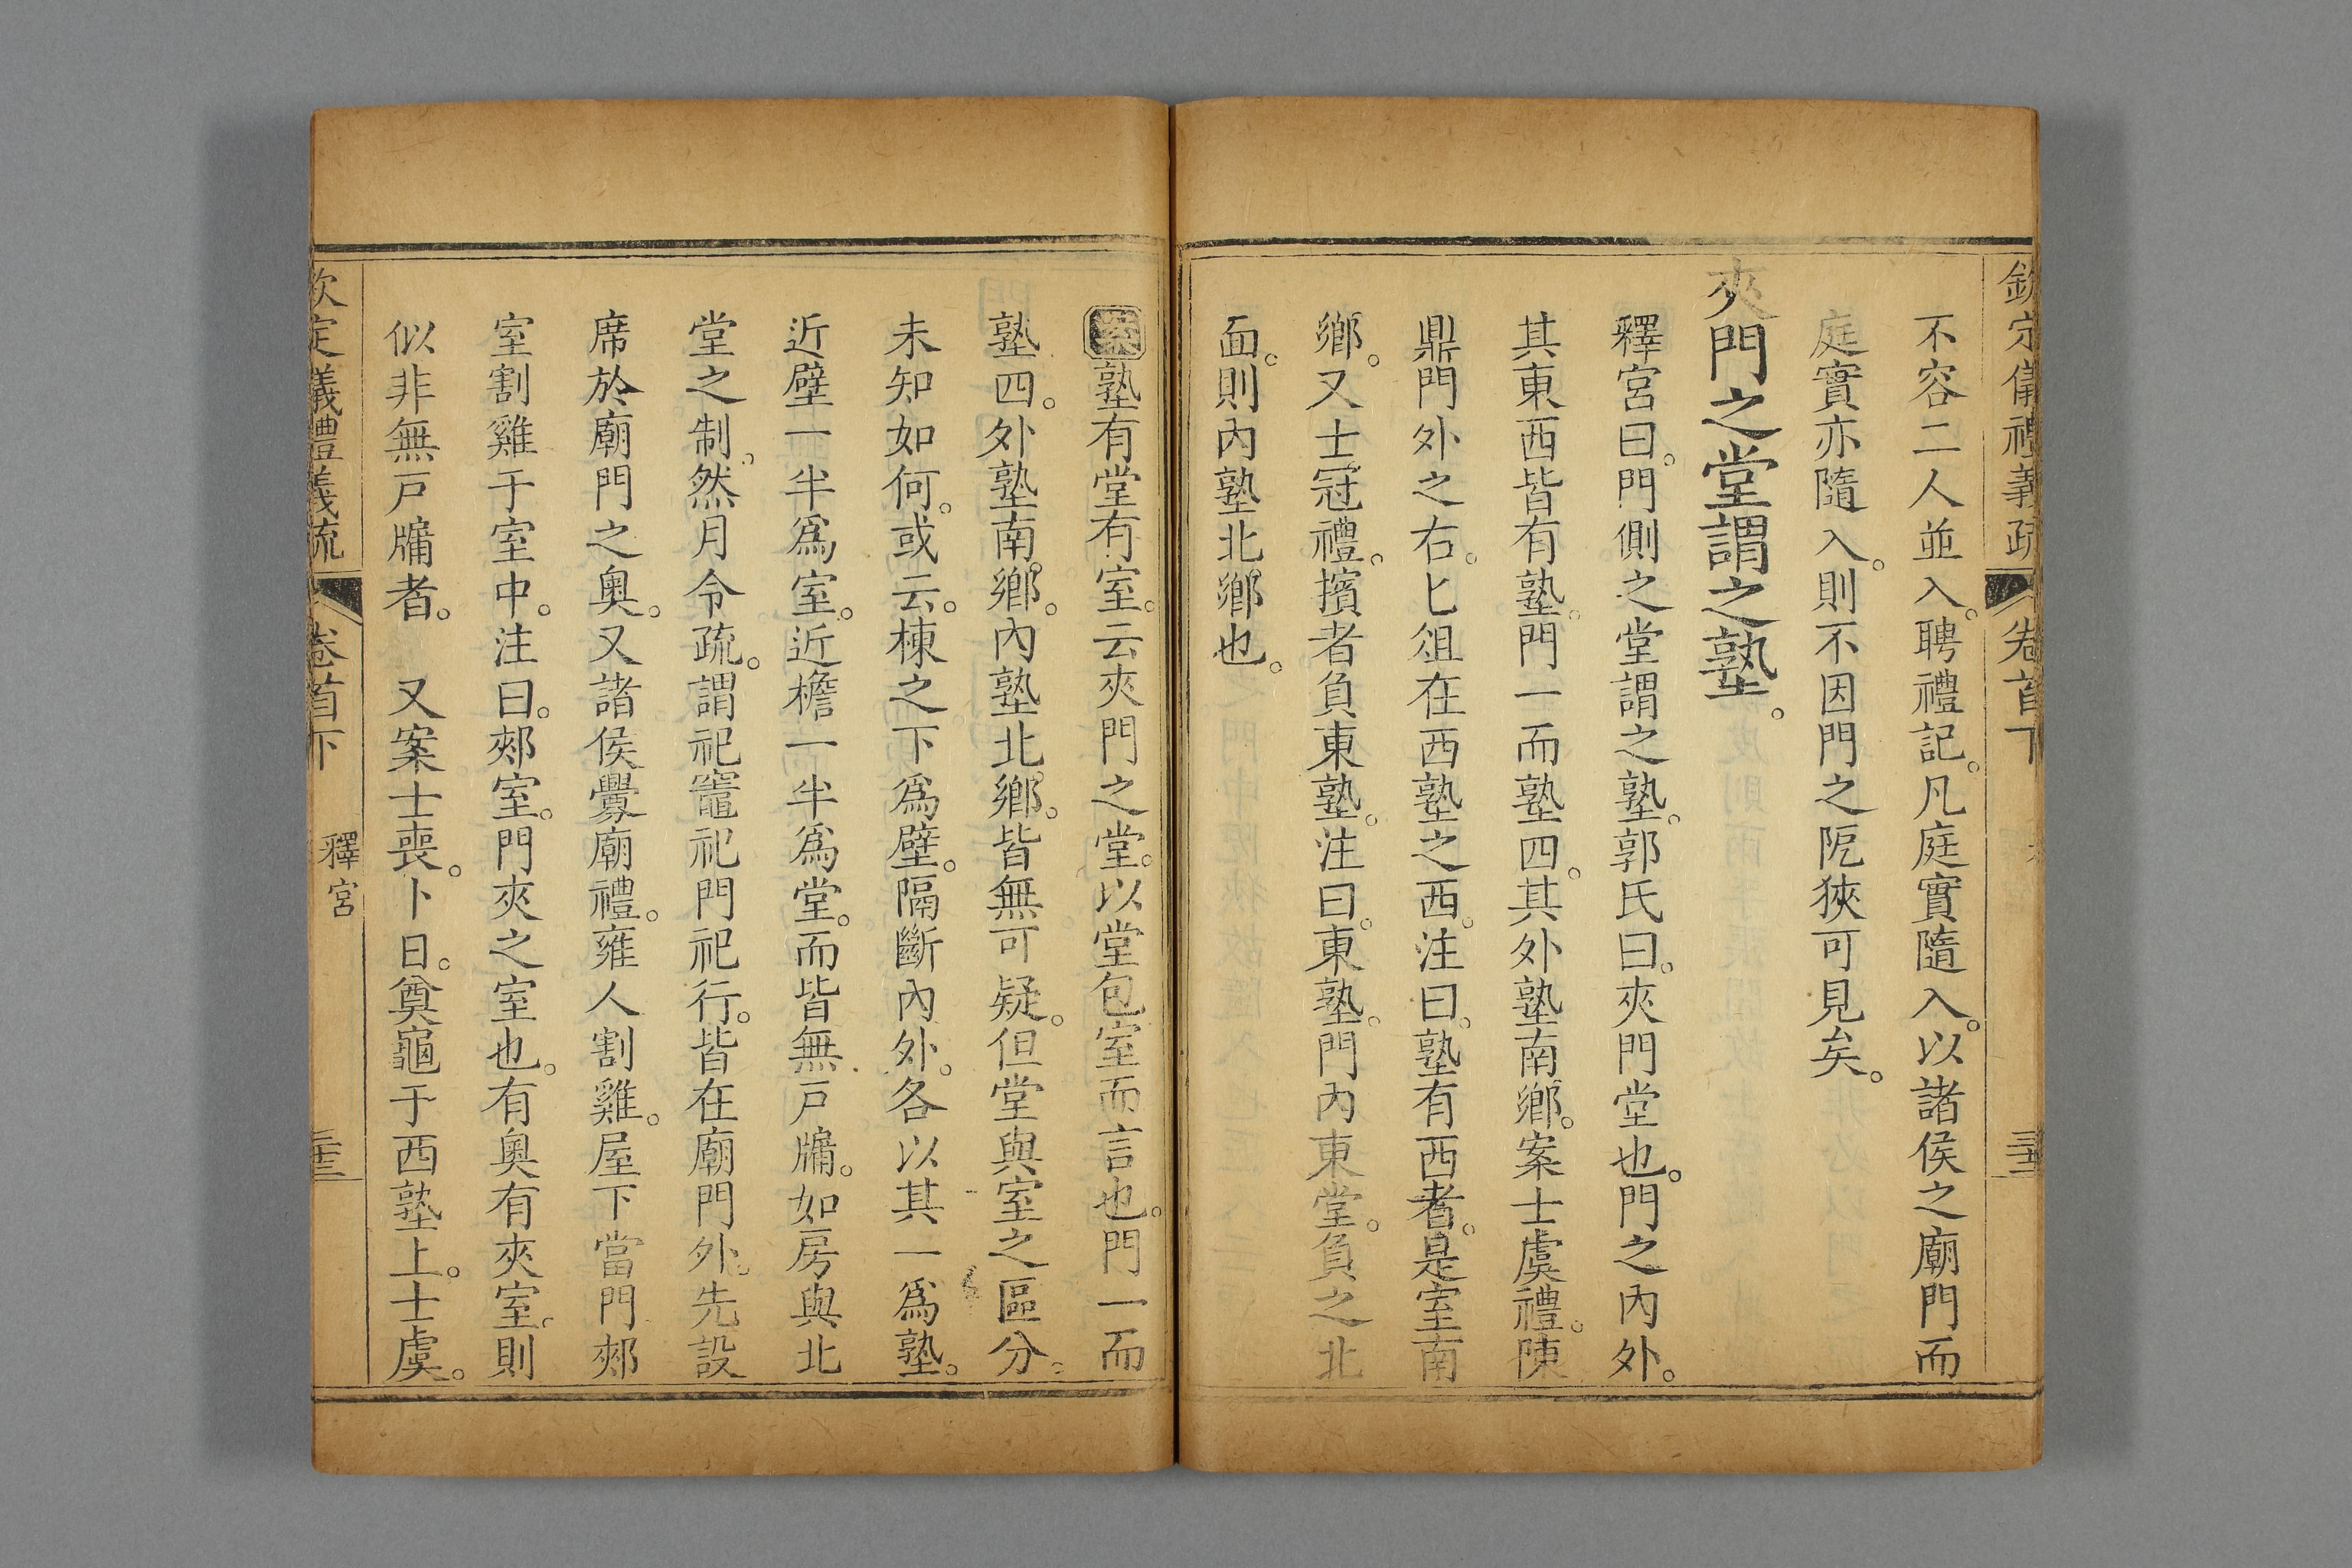 欽定儀禮義疏 卷首下
不容二人並入。聘禮記。凡庭實隨入。以諸侯之廟門而
庭實亦隨入。則不因門之阨狹可見矣。
夾門之堂謂之塾。
釋宮曰。門側之堂謂之塾。郭氏曰。夾門堂也。門之內外。
其東西皆有塾。門一而塾四。其外塾南鄉。案士虞禮。陳
鼎門外之右。匕俎在西塾之西。注曰。塾有西者。是室南
鄉。又士冠禮。擯者負東塾。注曰。東塾。門內東堂。負之北
面。則內塾北鄉也。
案塾有堂有室。云夾門之堂。以堂包室而言也。門一而
塾四。外塾南鄉。內塾北鄉。皆無可疑。但堂與室之區分。
未知如何。或云。棟之下為壁。隔斷內外。各以其一為塾。
近壁一半為室。近檐一半為堂。而皆無戶牖。如房與北
堂之制。然月令疏。謂祀竈祀門祀行。皆在廟門外。先設
席於廟門之奧。又諸侯釁廟禮。雍人割雞。屋下當門郟
室割雞于室中。注曰。郟室。門夾之室也。有奧有夾室。則
似非無戶牖者。 又案士喪。卜日。奠龜于西塾上。士虞。
欽定儀禮義疏 卷首下 釋宮